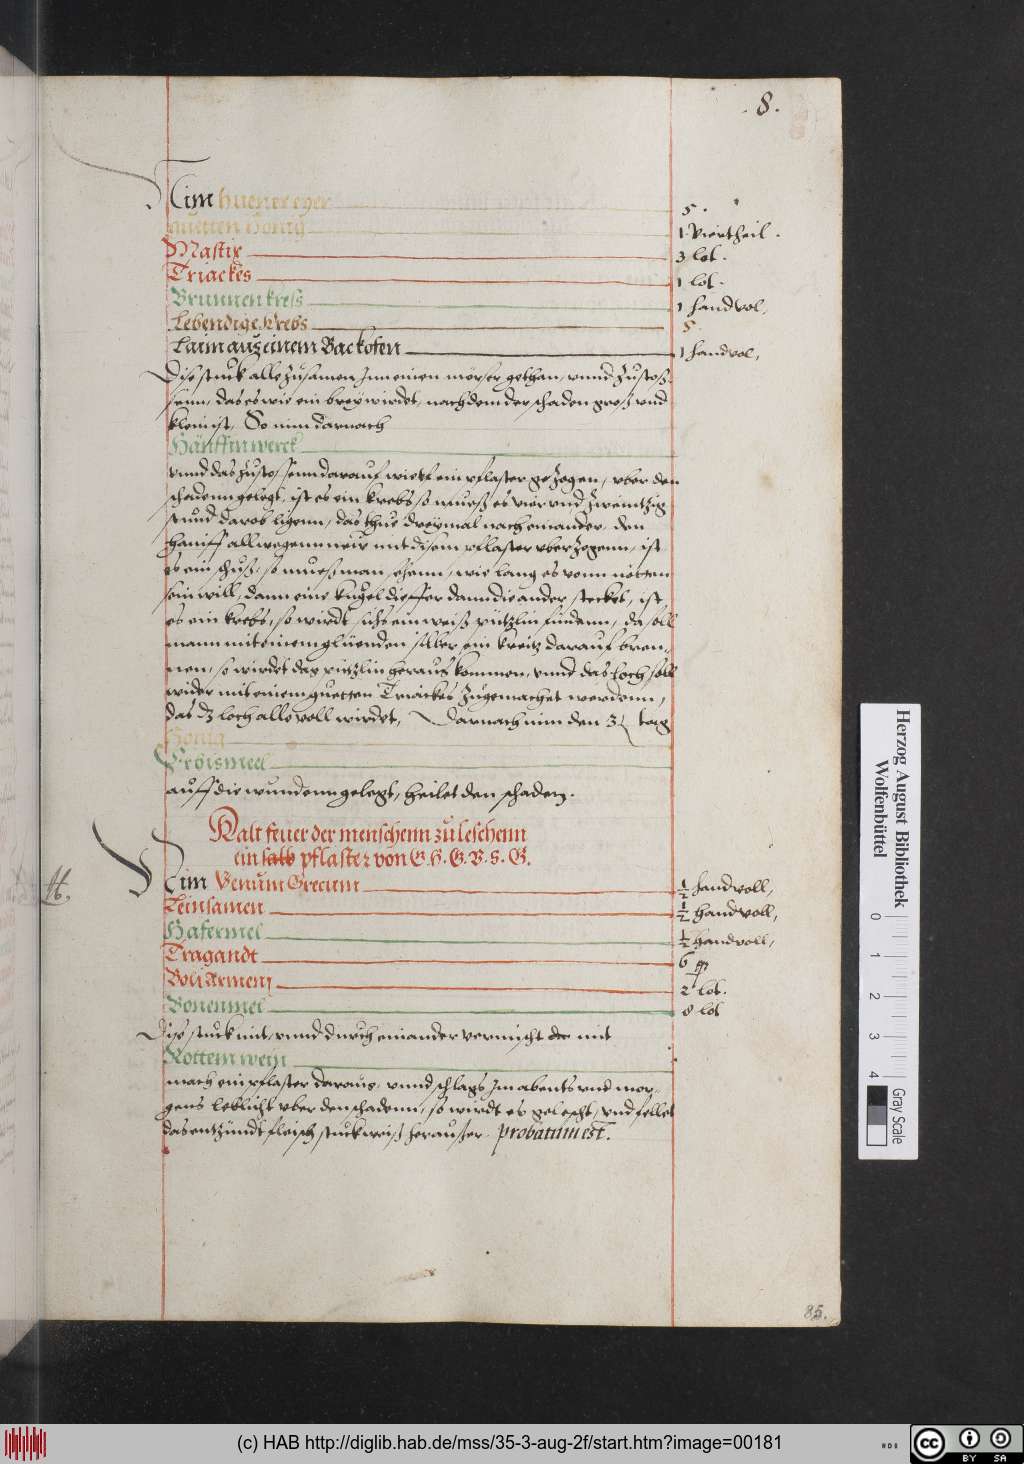 .8.
Nim huener eyer 5.
guetten Honig 1 Viertheil.
Mastix 3 lot.
Triackes 1 lot.
Brunnen kreß 1 handvol,
Lebendige Krebs 5.
Laim auß einem Backofen 1 handvol,
Dise stuck alle zusamen Inn einen mörser gethan, vnnd zustoß-
senn, das es wie ein brey wirdet, nach dem der schaden groß vnd
klein ist, So nim darnach
Hänffin werck
vnnd das zustossenn darauf wie ein pflaster gezogen, vber den
schadenn gelegt, ist es ein krebs so mueß es vier vnd zweintzig
stund darob ligenn, das thue dreymal nach einander, den
hanff allwegenn new mit disem pflaster vberzogenn, ist
es ein schuß, so mueß man sehenn, wie lang es vonn nöten
sein will, dann eine kugel dieffer dann die ander stecket, ist
es ein krebs, so wirdt sichs ein weiß pützlin findenn, da soll
mann mit einem glüenden silber ein kreitz darauf bren-
nen, so wirdet das pützlin heraus kommen, vnnd das Loch soll
wider mit einem guetten Triackes zugemachet werdenn,
das dz loch alle voll wirdet, Darnach nim den 3 tag
Honig
Gröismeel
auff die wundenn gelegt, heilet den schaden.
Kalt feuer der menschenn zu leschenn
ein salb pflaster von G. H. G. V. S. G.
H.
Nim Venum Grecum ½ handvoll,
Leinsamen ½ handvoll,
Hafermel ½ handvoll,
Tragandt 6
Boli Armenj 2 lot.
Bonenmel 8 lot
Dise stuck mit, vnnd durch einander vermischt mit
Rottem wein
mach ein pflaster daraus, vnnd schlags Im abents vnd mor-
gens leblicht vber den schadenn, so wirdt es gelescht, vnd fellet
das entzündt fleisch stuckweiß heraußer. probatum est.
85.
Herzog August Bibliothek
Wolfenbüttel
0 1 2 3 4
Gray Scale
(c) HAB http://diglib.hab.de/mss/35-3-aug-2f/start.htm?image=00181
cc BY SA